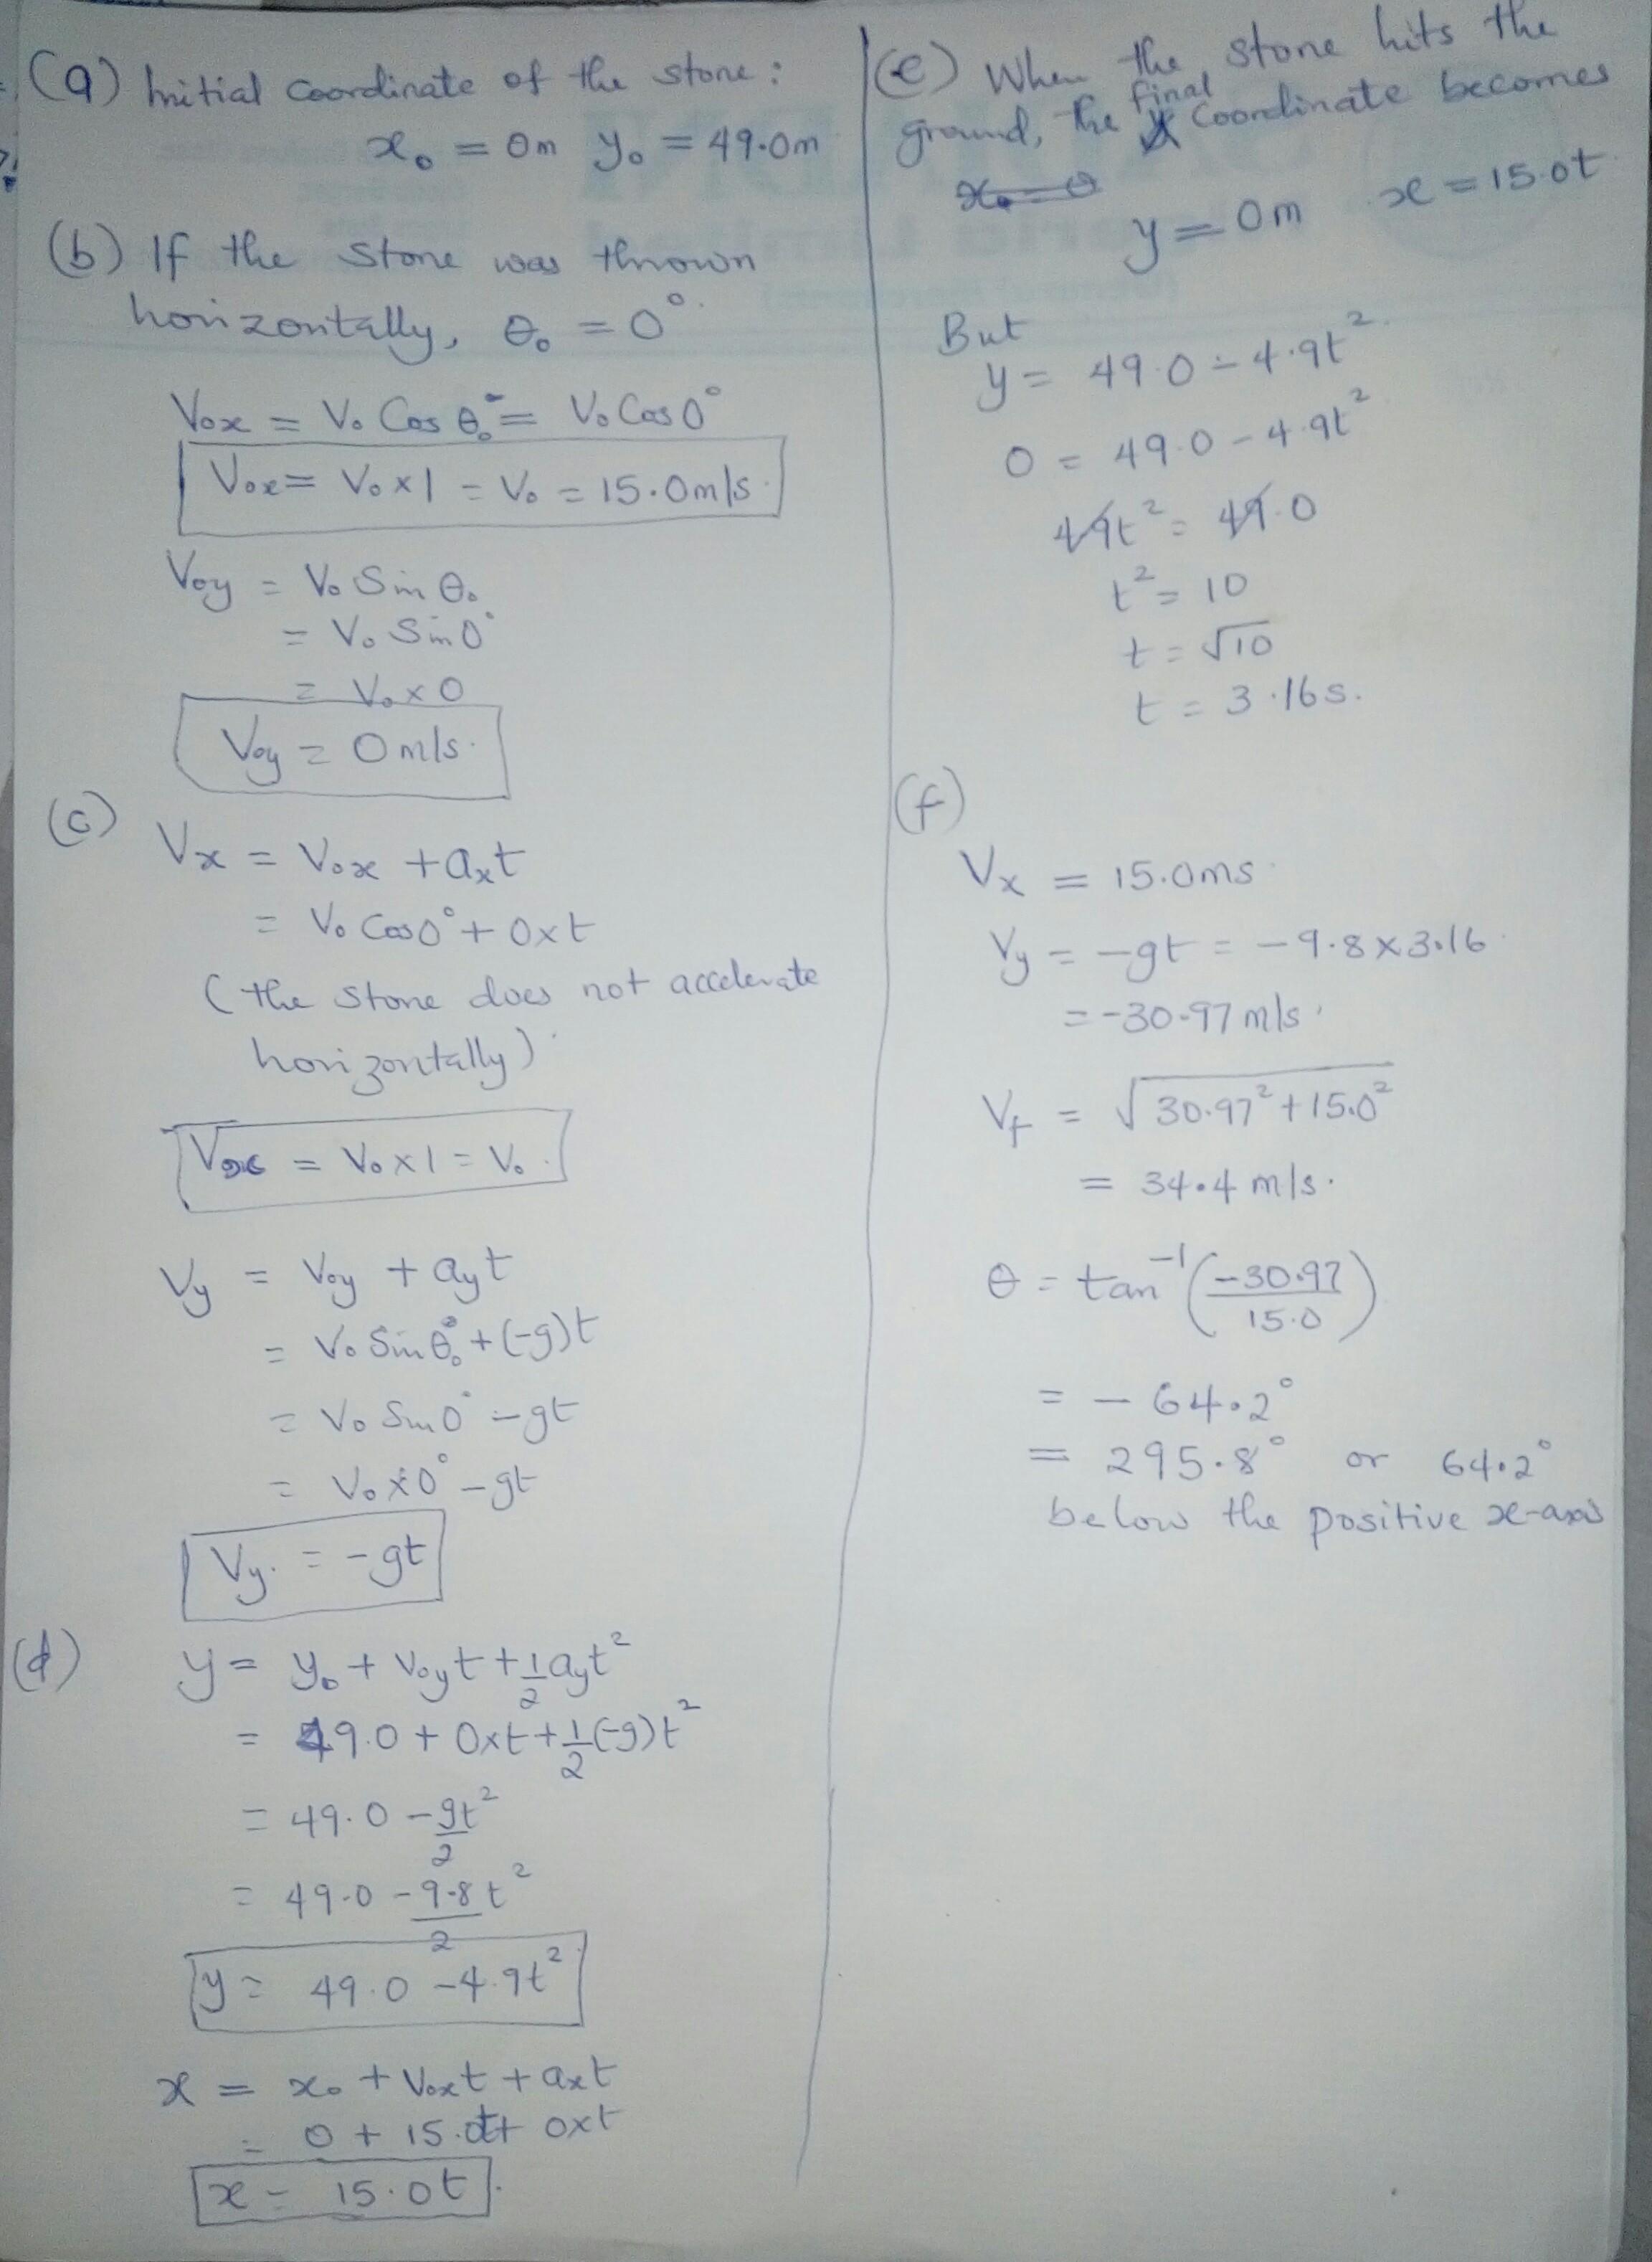 (a) Initial coordinate of the stone:
x₀ = 0m y₀ = 49.0m
(b) If the stone was thrown
horizontally, θ₀ = 0°.
V₀x = V₀ Cos θ₀ = V₀ Cos 0°
V₀x = V₀ x 1 = V₀ = 15.0m/s.
V₀y = V₀ Sin θ₀
= V₀ Sin 0°
= V₀ x 0
V₀y = 0 m/s.
(c) Vx = V₀x + axt
= V₀ Cos 0° + 0xt
(the stone does not accelerate
horizontally).
V₀x = V₀ x 1 = V₀.
Vy = V₀y + ayt
= V₀ Sin θ₀ + (-g)t
= V₀ Sin 0° - gt
= V₀ x 0° - gt
Vy. = -gt
(d) y = y₀ + V₀yt + 1/2 ayt²
= 49.0 + 0xt + 1/2 (-g)t²
= 49.0 - gt²/2
= 49.0 - 9.8t²/2
y = 49.0 - 4.9t²
x = x₀ + V₀xt + axt
= 0 + 15.0t + 0xt
x = 15.0t.
(e) When the stone hits the
ground, the final coordinate becomes
y = 0m x = 15.0t
But
y = 49.0 - 4.9t².
0 = 49.0 - 4.9t²
4.9t² = 49.0
t² = 10
t = √10
t = 3.16s.
(f)
Vx = 15.0ms
Vy = -gt = -9.8 x 3.16
= -30.97 m/s.
Vf = √30.97² + 15.0²
= 34.4 m/s.
θ = tan⁻¹(-30.97/15.0)
= - 64.2°
= 295.8° or 64.2°
below the positive x-axis